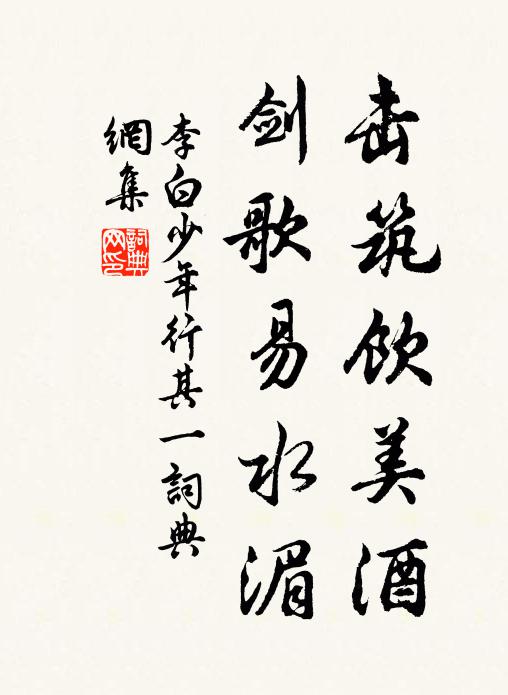 击筑饮美酒
剑歌易水湄
李白少年行其一詞典
網集
詞典網印